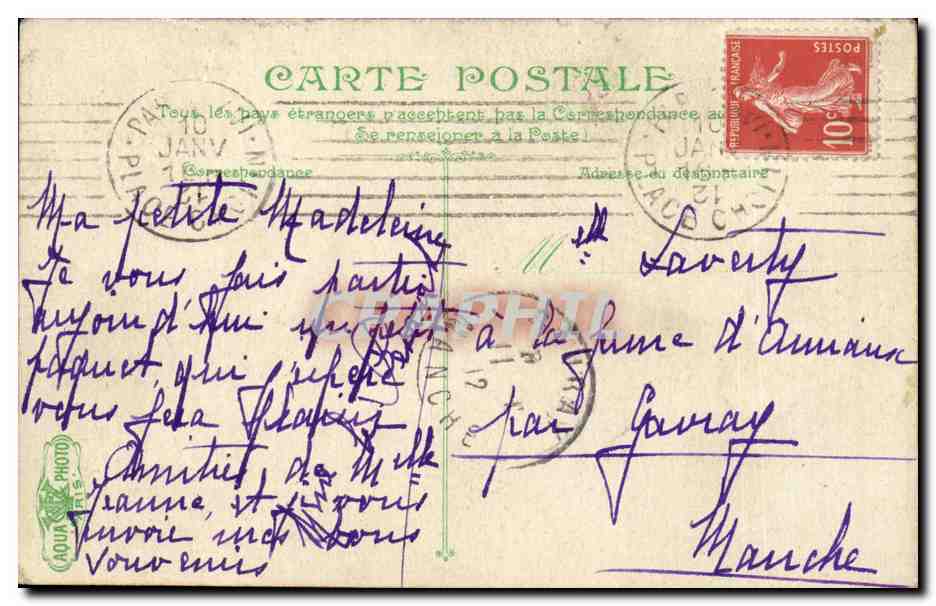 CARTE POSTALE
Tous les pays étrangers n'acceptent pas la Correspondance au
(Se renseigner à la Poste)
Correspondance
Adresse du destinataire
RÉPUBLIQUE FRANÇAISE
POSTES
10c
10
JANV
PLACE CHOPIN
Ma petite Madeleine
Je vous fais partir
aujourd'hui un petit
paquet, qui j'espère
vous fera plaisir
Amitiés, de Melle
Jeanne, et vous
envoie mes bons
souvenirs
Melle Laverty
à la
par Gavray
Manche
GAVRAY
11
12
MANCHE
AQUA PHOTO
PARIS
CPAPHIL